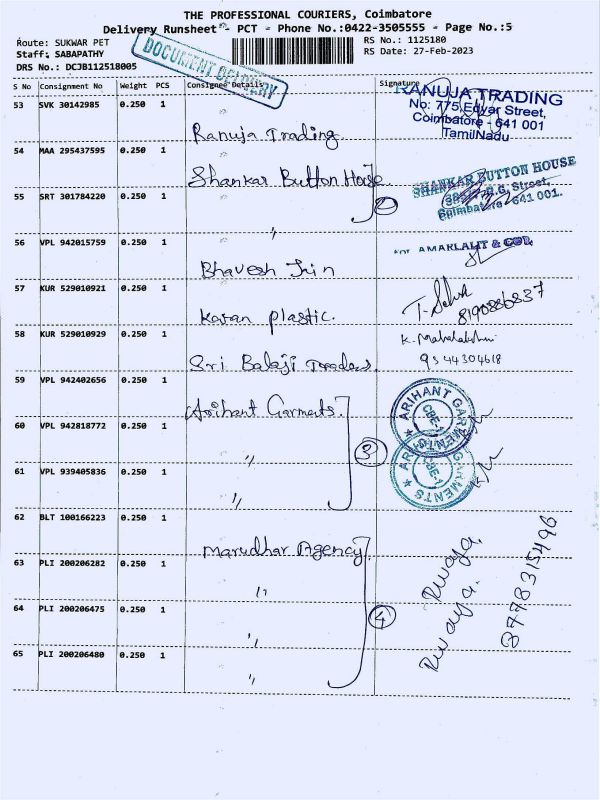 THE PROFESSIONAL COURIERS, Coimbatore
Delivery Runsheet - PCT - Phone No.:0422-3505555 - Page No.:5
Route: SUKWAR PET
RS No.: 1125180
Staff: SABAPATHY
RS Date: 27-Feb-2023
DRS No.: DCJB112518005
DOCUMENT DELIVERY
S No Consignment No Weight PCS Consignee Details Signature
53 SVK 30142985 0.250 1
Ranuja Trading
RANUJA TRADING
No: 775, Edyar Street,
Coimbatore - 641 001
TamilNadu
54 MAA 295437595 0.250 1
Shankar Button House
SHANKAR BUTTON HOUSE
Street,
Coimbatore - 641 001.
55 SRT 301784220 0.250 1
"
2
56 VPL 942015759 0.250 1
Bhavesh Jain
For AMARLALIT & CO.,
57 KUR 529010921 0.250 1
Karan plastic.
8190886837
58 KUR 529010929 0.250 1
Sri Balaji Traders.
K. Mahalakshmi
9344304618
59 VPL 942402656 0.250 1
Arihant Garments.
ARIHANT GARMENTS
CBE-1
60 VPL 942818772 0.250 1
"
3
ARIHANT GARMENTS
CBE-1
61 VPL 939405836 0.250 1
"
62 BLT 100166223 0.250 1
Marudhar Agency
63 PLI 200206282 0.250 1
"
64 PLI 200206475 0.250 1
"
4
65 PLI 200206480 0.250 1
"